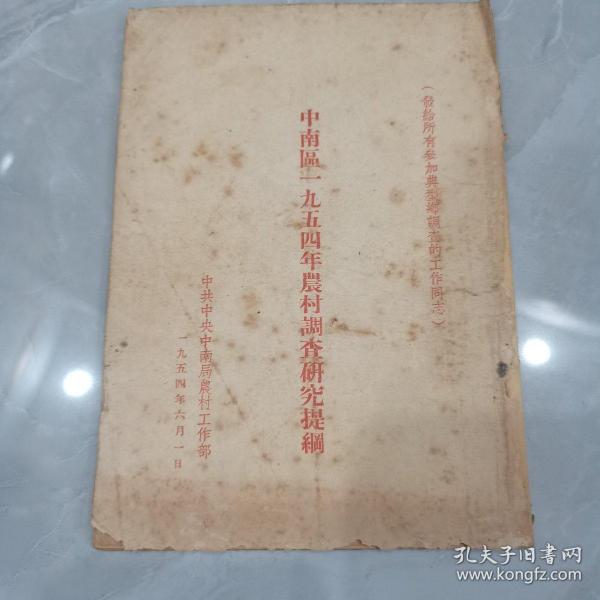 （發給所有參加典型鄉調查的工作同志）
中南區一九五四年農村調查研究提綱
中共中央中南局農村工作部
一九五四年六月一日
孔夫子旧书网
www.kongfz.com